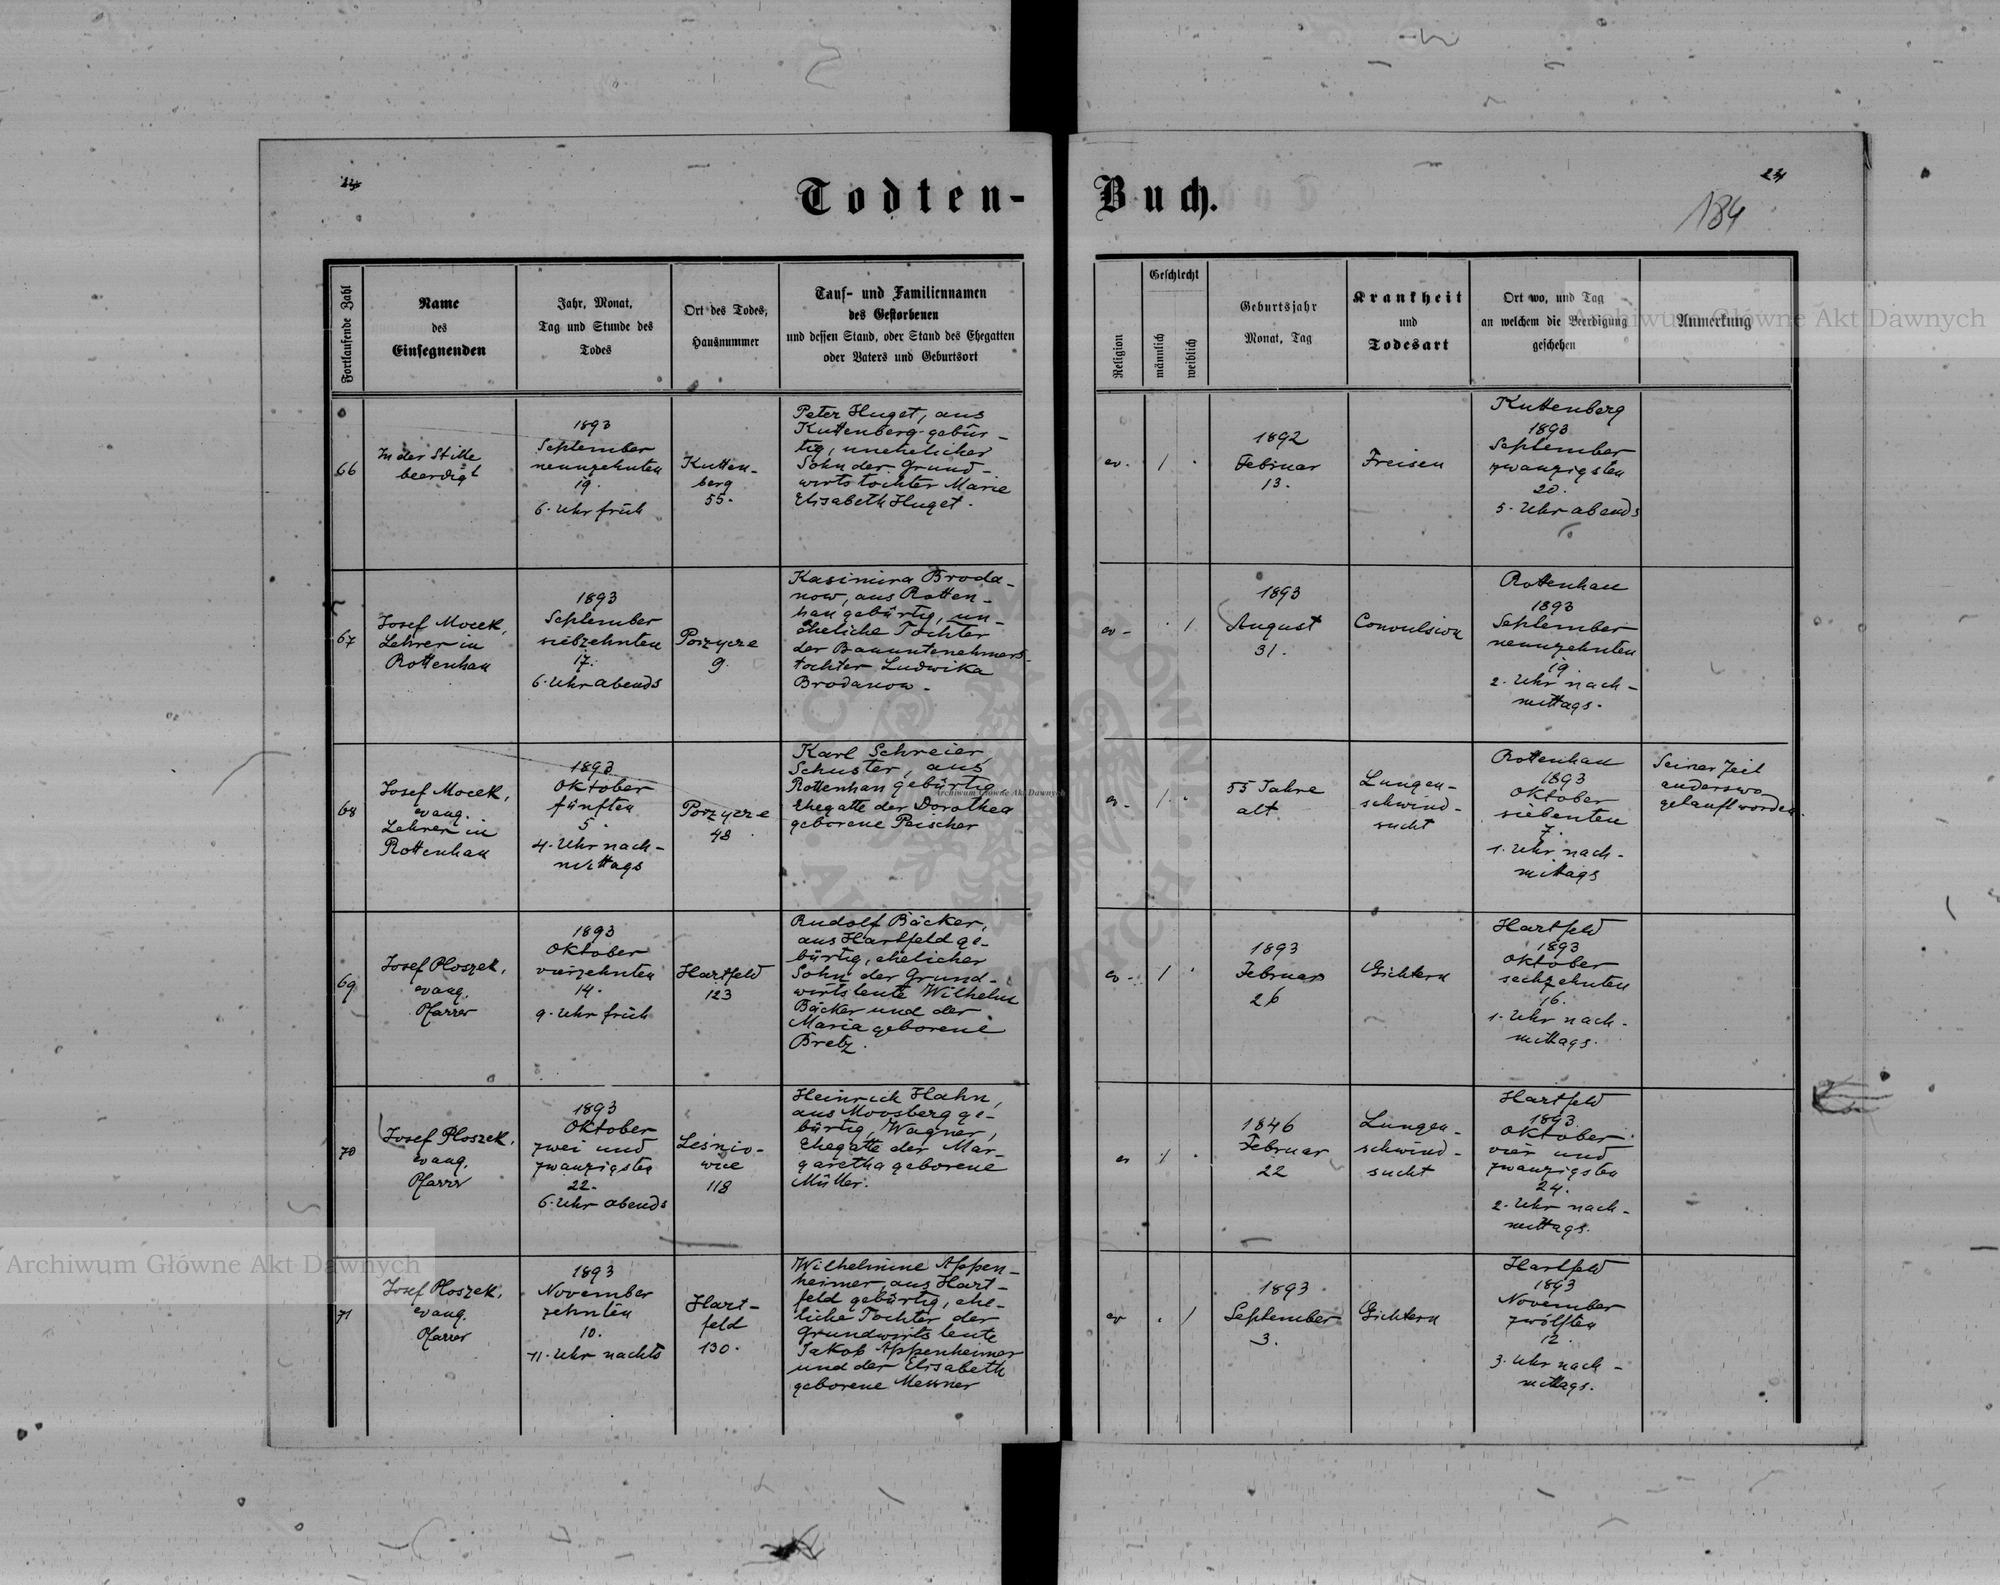 24
Todten-
Buch.
24
184
Fortlaufende Zahl
Name
des
Einsegnenden
Jahr, Monat,
Tag und Stunde des
Todes
Ort des Todes,
Hausnummer
Tauf- und Familiennamen
des Gestorbenen
und dessen Stand, oder Stand des Ehegatten
oder Vaters und Geburtsort
Religion
Geschlecht
männlich
weiblich
Geburtsjahr
Monat, Tag
Krankheit
und
Todesart
Ort wo, und Tag
an welchem die Beerdigung
geschehen
Anmerkung
Archiwum Główne Akt Dawnych
66
In der Stille
beerdigt
1893
September
neunzehnten
19.
6. Uhr früh
Kutten-
berg
55.
Peter Huget, aus
Kuttenberg gebür-
tig, unehelicher
Sohn der Grund-
wirtstochter Marie
Elisabeth Huget.
ev.
1
1892
Februar
13.
Freisen
Kuttenberg
1893
September
zwanzigsten
20.
5. Uhr abends
67
Josef Mocek,
Lehrer in
Rottenhan
1893
September
siebzehnten
17.
6. Uhr abends
Porzycze
9.
Kasimira Broda-
now, aus Rotten-
han gebürtig, un-
eheliche Tochter
der Bauunternehmers-
tochter Ludwika
Brodanow.
ev.
1
1893
August
31.
Convulsion
Rottenhan
1893
September
neunzehnten
19.
2. Uhr nach-
mittags.
68
Josef Mocek,
evang.
Lehrer in
Rottenhan
1893
Oktober
fünften
5.
4. Uhr nach-
mittags
Porzycze
48
Karl Schreier,
Schuster, aus
Rottenhan gebürtig
Ehegatte der Dorothea
geborene Peischer
ev.
1
55 Jahre
alt
Lungen-
schwind-
sucht
Rottenhan
1893
Oktober
siebenten
7.
1. Uhr nach-
mittags
Seiner Zeit
anderswo
getauft worden.
Archiwum Główne Akt Dawnych
69
Josef Ploszek,
evang.
Pfarrer
1893
Oktober
vierzehnten
14.
9. Uhr früh
Hartfeld
123
Rudolf Bäcker,
aus Hartfeld ge-
bürtig, ehelicher
Sohn der Grund-
wirtsleute Wilhelm
Bäcker und der
Maria geborene
Bretz.
ev.
1
1893
Februar
26
Gichtern
Hartfeld
1893
Oktober
sechzehnten
16.
1. Uhr nach-
mittags.
70
Josef Ploszek,
evang.
Pfarrer
1893
Oktober
zwei und
zwanzigsten
22.
6. Uhr abends
Leśnio-
wice
118
Heinrich Hahn,
aus Moosberg ge-
bürtig, Wagner,
Ehegatte der Mar-
garetha geborene
Müller.
ev
1
1846
Februar
22
Lungen-
schwind-
sucht
Hartfeld
1893
Oktober
vier und
zwanzigsten
24.
2. Uhr nach-
mittags.
71
Josef Ploszek,
evang.
Pfarrer
1893
November
zehnten
10.
11. Uhr nachts
Hart-
feld
130.
Wilhelmine Appen-
heimer, aus Hart-
feld gebürtig, ehe-
liche Tochter der
Grundwirtsleute
Jakob Appenheimer
und der Elisabeth
geborene
ev
1
1893
September
3.
Gichtern
Hartfeld
1893
November
zwölften
12.
3. Uhr nach-
mittags.
Archiwum Główne Akt Dawnych